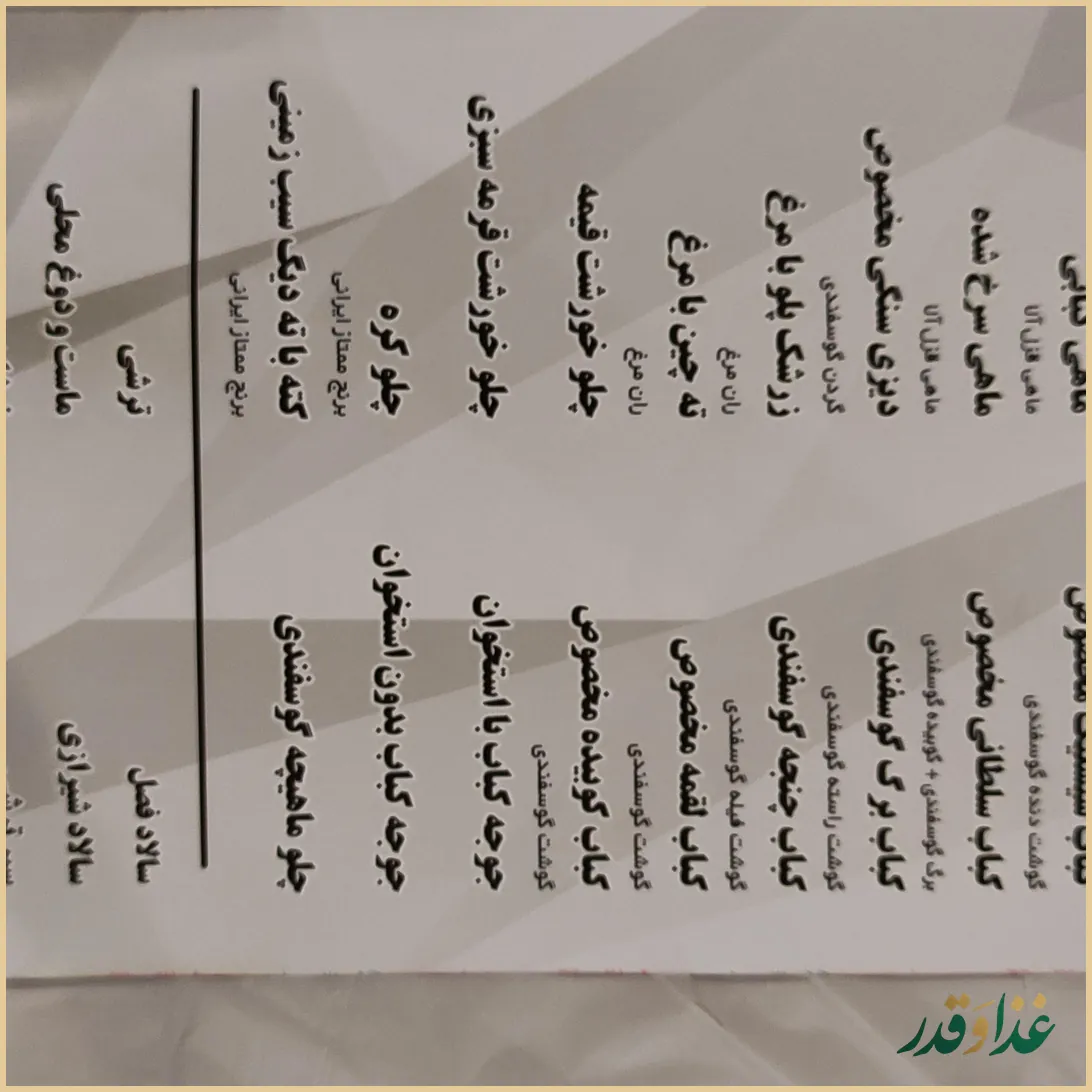 کباب شیشلیک مخصوص
گوشت دنده گوسفندی
کباب سلطانی مخصوص
برگ گوسفندی + کوبیده گوسفندی
کباب برگ گوسفندی
گوشت راسته گوسفندی
کباب چنجه گوسفندی
گوشت فیله گوسفندی
کباب لقمه مخصوص
گوشت گوسفندی
کباب کوبیده مخصوص
گوشت گوسفندی
جوجه کباب با استخوان
جوجه کباب بدون استخوان
چلو ماهیچه گوسفندی
ماهی کبابی
ماهی قزل آلا
ماهی سرخ شده
ماهی قزل آلا
دیزی سنگی مخصوص
گردن گوسفندی
زرشک پلو با مرغ
ران مرغ
ته چین با مرغ
ران مرغ
چلو خورشت قیمه
چلو خورشت قرمه سبزی
چلو کره
برنج ممتاز ایرانی
کته با ته دیگ سیب زمینی
برنج ممتاز ایرانی
سالاد فصل
سالاد شیرازی
ترشی
ماست و دوغ محلی
غذا و قدر